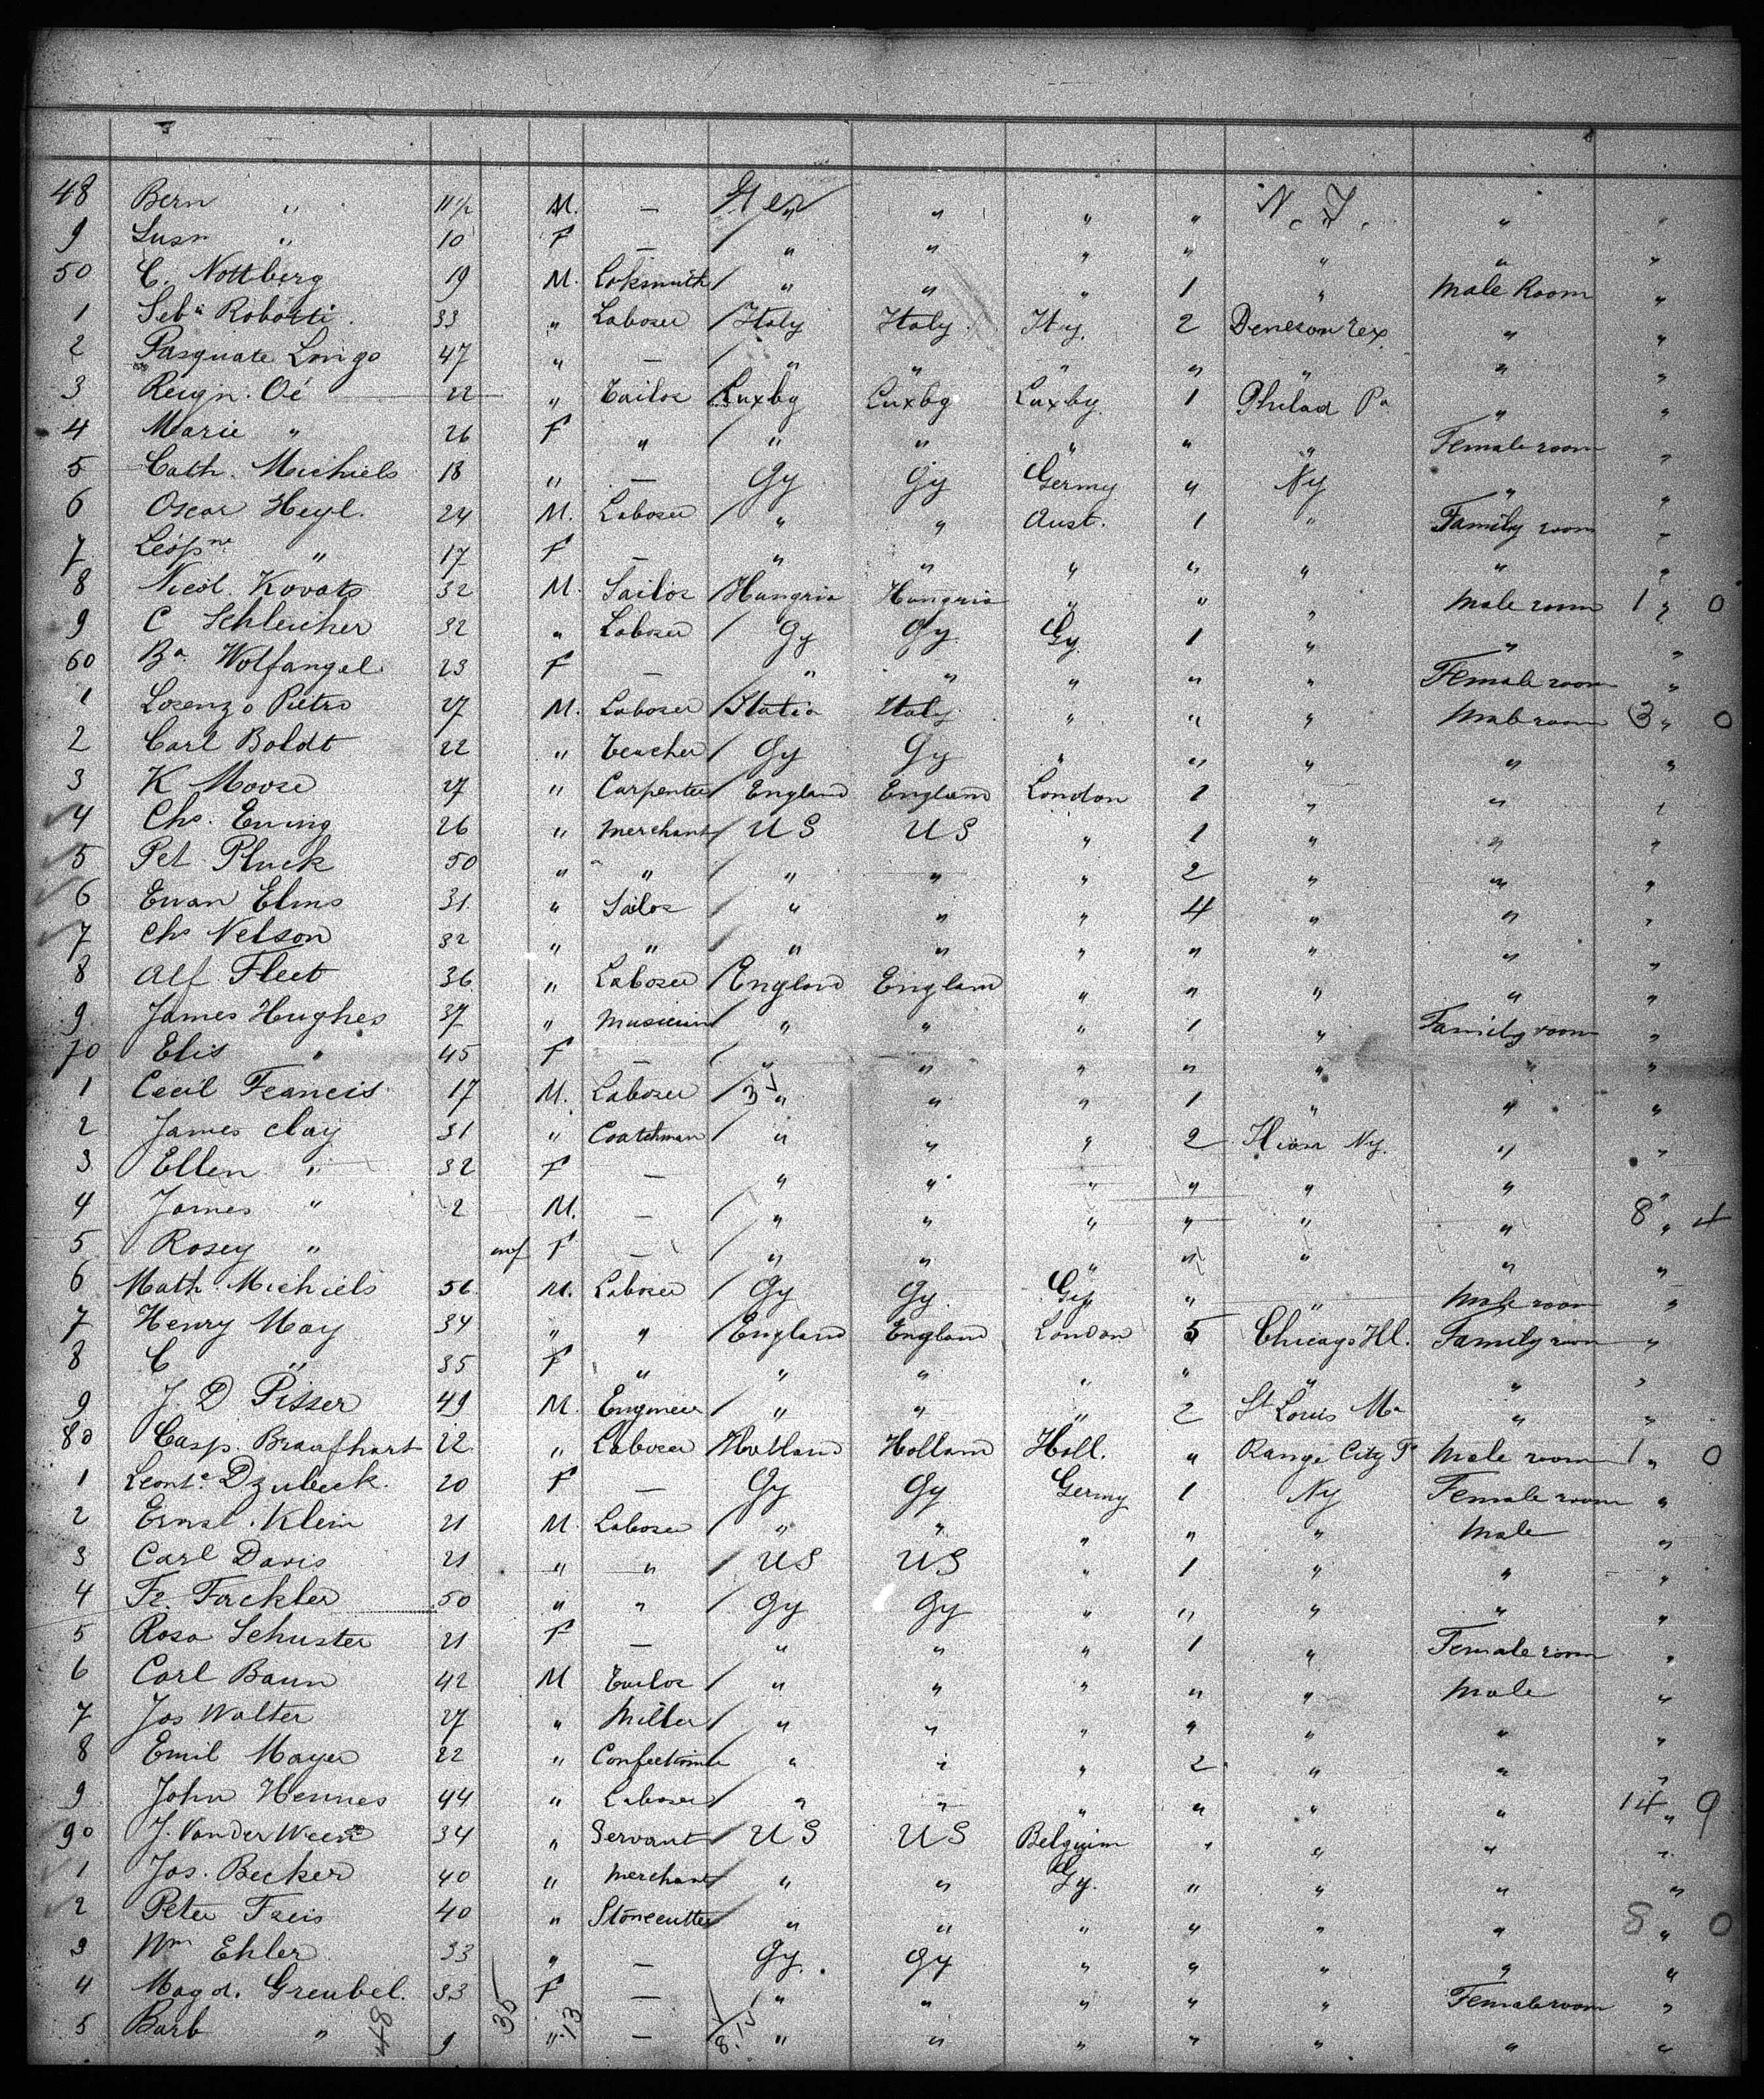 48 Bern " 11 1/2 M. — Ger " " " " N.J. " "
9 Susn " 10 F — " " " " " " "
50 C. Nottberg 19 M. Loksmith " " " 1 " Male Room "
1 Seb. Roborti 33 " Laborer Italy Italy Ity. 2 Deneson Tex " "
2 Pasquate Longo 47 " — " " " " " " "
3 Reign. Oé 22 " Tailor Luxbg Luxbg Luxbg. 1 Philad Pa " "
4 Marie " 26 F " " " " " " Female room "
5 Cath. Michiels 18 " — Gy Gy Germy " Ny " "
6 Oscar Heyl. 24 M. Laborer " " Aust. 1 " Family room "
7 Leopne " 17 F — " " " " " " "
8 Nicol. Kovats 32 M. Sailor Hungria Hungria " " " Male room 1 " 0
9 C Schleicher 32 " Laborer Gy Gy. Gy. 1 " " "
60 Ba. Wolfangel 23 F — " " " " " Female room "
1 Lorenzo Pietro 27 M. Laborer Italia Italy " " " Male room 3 " 0
2 Carl Boldt 22 " Teacher Gy Gy " " " " "
3 K Moore 27 " Carpenter England England London 1 " " "
4 Chs. Ewing 26 " Merchant US US " 1 " " "
5 Pet. Pluck 50 " " " " " 2 " " "
6 Ewan Elms 31. " Sailor " " " 4 " " "
7 Chs Nelson 32 " " " " " " " " "
8 Alf Fleet 36 " Laborer England England " " " " "
9 James Hughes 37 " Musician " " " 1 " Family room "
70 Elis " 45 F — " " " " " " "
1 Cecil Francis 17 M. Laborer 3 " " " 1 " " "
2 James Clay 31 " Coatchman " " " 2 Ny. " "
3 Ellen " 32 F — " " " " " " "
4 James " 2 M. — " " " " " " 8 " 4
5 Rosey " inf F — " " " " " " "
6 Math. Michiels 56. M. Laborer Gy Gy. Gy " " Male room "
7 Henry May 34 " " England England London 5 Chicago Ill. Family room "
8 C " 35 F " " " " " " " "
9 J. D Pisser 49 M. Engineer " " " 2 St Louis Mo " "
80 Casp. Braafhart 22. " Laborer Holland Holland Holl. " Range City Male room 1 " 0
1 Leont. Dzubeck. 20 F — Gy Gy Germy 1 Ny Female room "
2 Ernst. Klein 21 M. Laborer " " " " " Male "
3 Carl Davis 21 " " US US " 1 " " "
4 Fr. Fackler 50 " " Gy Gy " " " " "
5 Rosa Schuster 21 F — " " " 1 " Female room "
6 Carl Baun 42 M Tailor " " " " " Male "
7 Jos Walter 27 " Miller " " " " " " "
8 Emil Mayer 22 " Confectioner " " " 2 " " "
9 John Hennes 44 " Laborer " " " " " " 14 " 9
90 J. Van der Ween 34 " Servant US US Belguim " " " "
1 Jos. Becker 40 " Merchant " " Gy. " " " "
2 Peter Freis 40 " Stonecutter " " " " " " 8 " 0
3 Wm Ehler 33 " — Gy. Gy " " " " "
4 Magd. Greubel. 33 F — " " " " " Female room "
5 Barb " 9 " — " " " " " " "
48 35 13 8.15